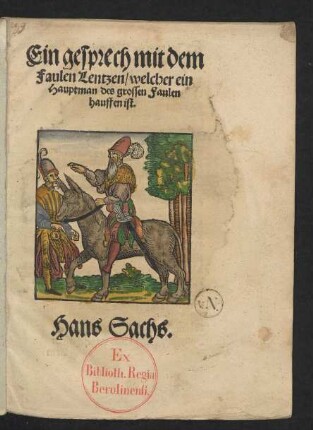 Ein gesprech mit dem
Faulen Lentzen/welcher ein
Hauptman des grossen Faulen
hauffen ist.
Hans Sachs.
Ex
Biblioth. Regia
Berolinensi.